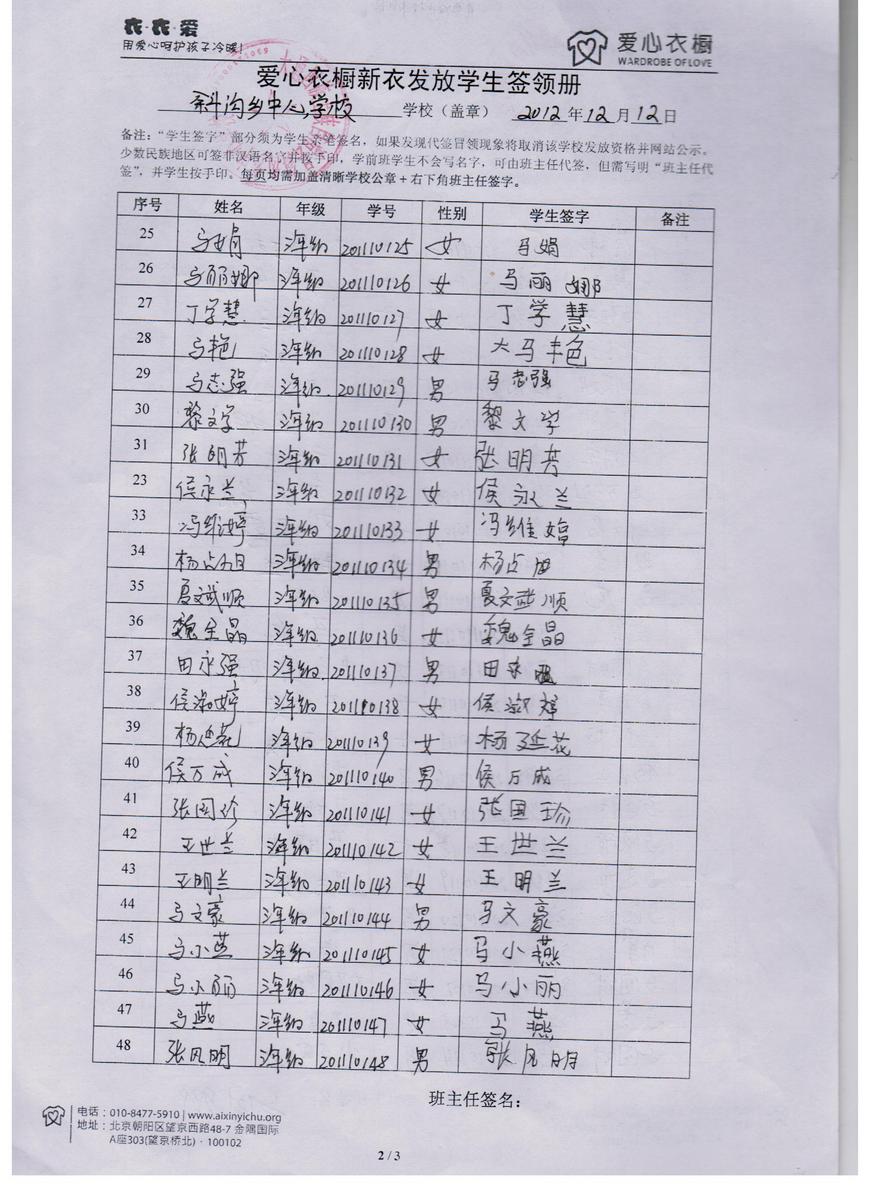 衣·衣·爱
用爱心呵护孩子冷暖!
爱心衣橱
WARDROBE OF LOVE
爱心衣橱新衣发放学生签领册
斜沟乡中心学校 学校(盖章) 2012年12月12日
备注:“学生签字”部分须为学生亲笔签名,如果发现代签冒领现象将取消该学校发放资格并网站公示。
少数民族地区可签非汉语名字并按手印,学前班学生不会写名字,可由班主任代签,但需写明“班主任代
签”,并学生按手印。每页均需加盖清晰学校公章+右下角班主任签字。
序号 姓名 年级 学号 性别 学生签字 备注
25 马娟 201110125 女 马娟
26 马丽娜 201110126 女 马丽娜
27 丁学慧 201110127 女 丁学慧
28 马艳 201110128 女 大马艳
29 马志强 201110129 男 马志强
30 黎文学 201110130 男 黎文学
31 张明芳 201110131 女 张明芳
23 侯永兰 201110132 女 侯永兰
33 冯维婷 201110133 女 冯维婷
34 杨占旭 201110134 男 杨占旭
35 夏文武顺 201110135 男 夏文武顺
36 魏全晶 201110136 女 魏全晶
37 田永强 201110137 男 田永强
38 侯淑婷 201110138 女 侯淑婷
39 杨延花 201110139 女 杨延花
40 侯万成 201110140 男 侯万成
41 张国珍 201110141 女 张国珍
42 王世兰 201110142 女 王世兰
43 王明兰 201110143 女 王明兰
44 马文豪 201110144 男 马文豪
45 马小燕 201110145 女 马小燕
46 马小丽 201110146 女 马小丽
47 马燕 201110147 女 马燕
48 张凡明 201110148 男 张凡明
班主任签名:
电话:010-8477-5910 | www.aixinyichu.org
地址:北京朝阳区望京西路48-7 金隅国际
A座303(望京桥北)·100102
2 / 3